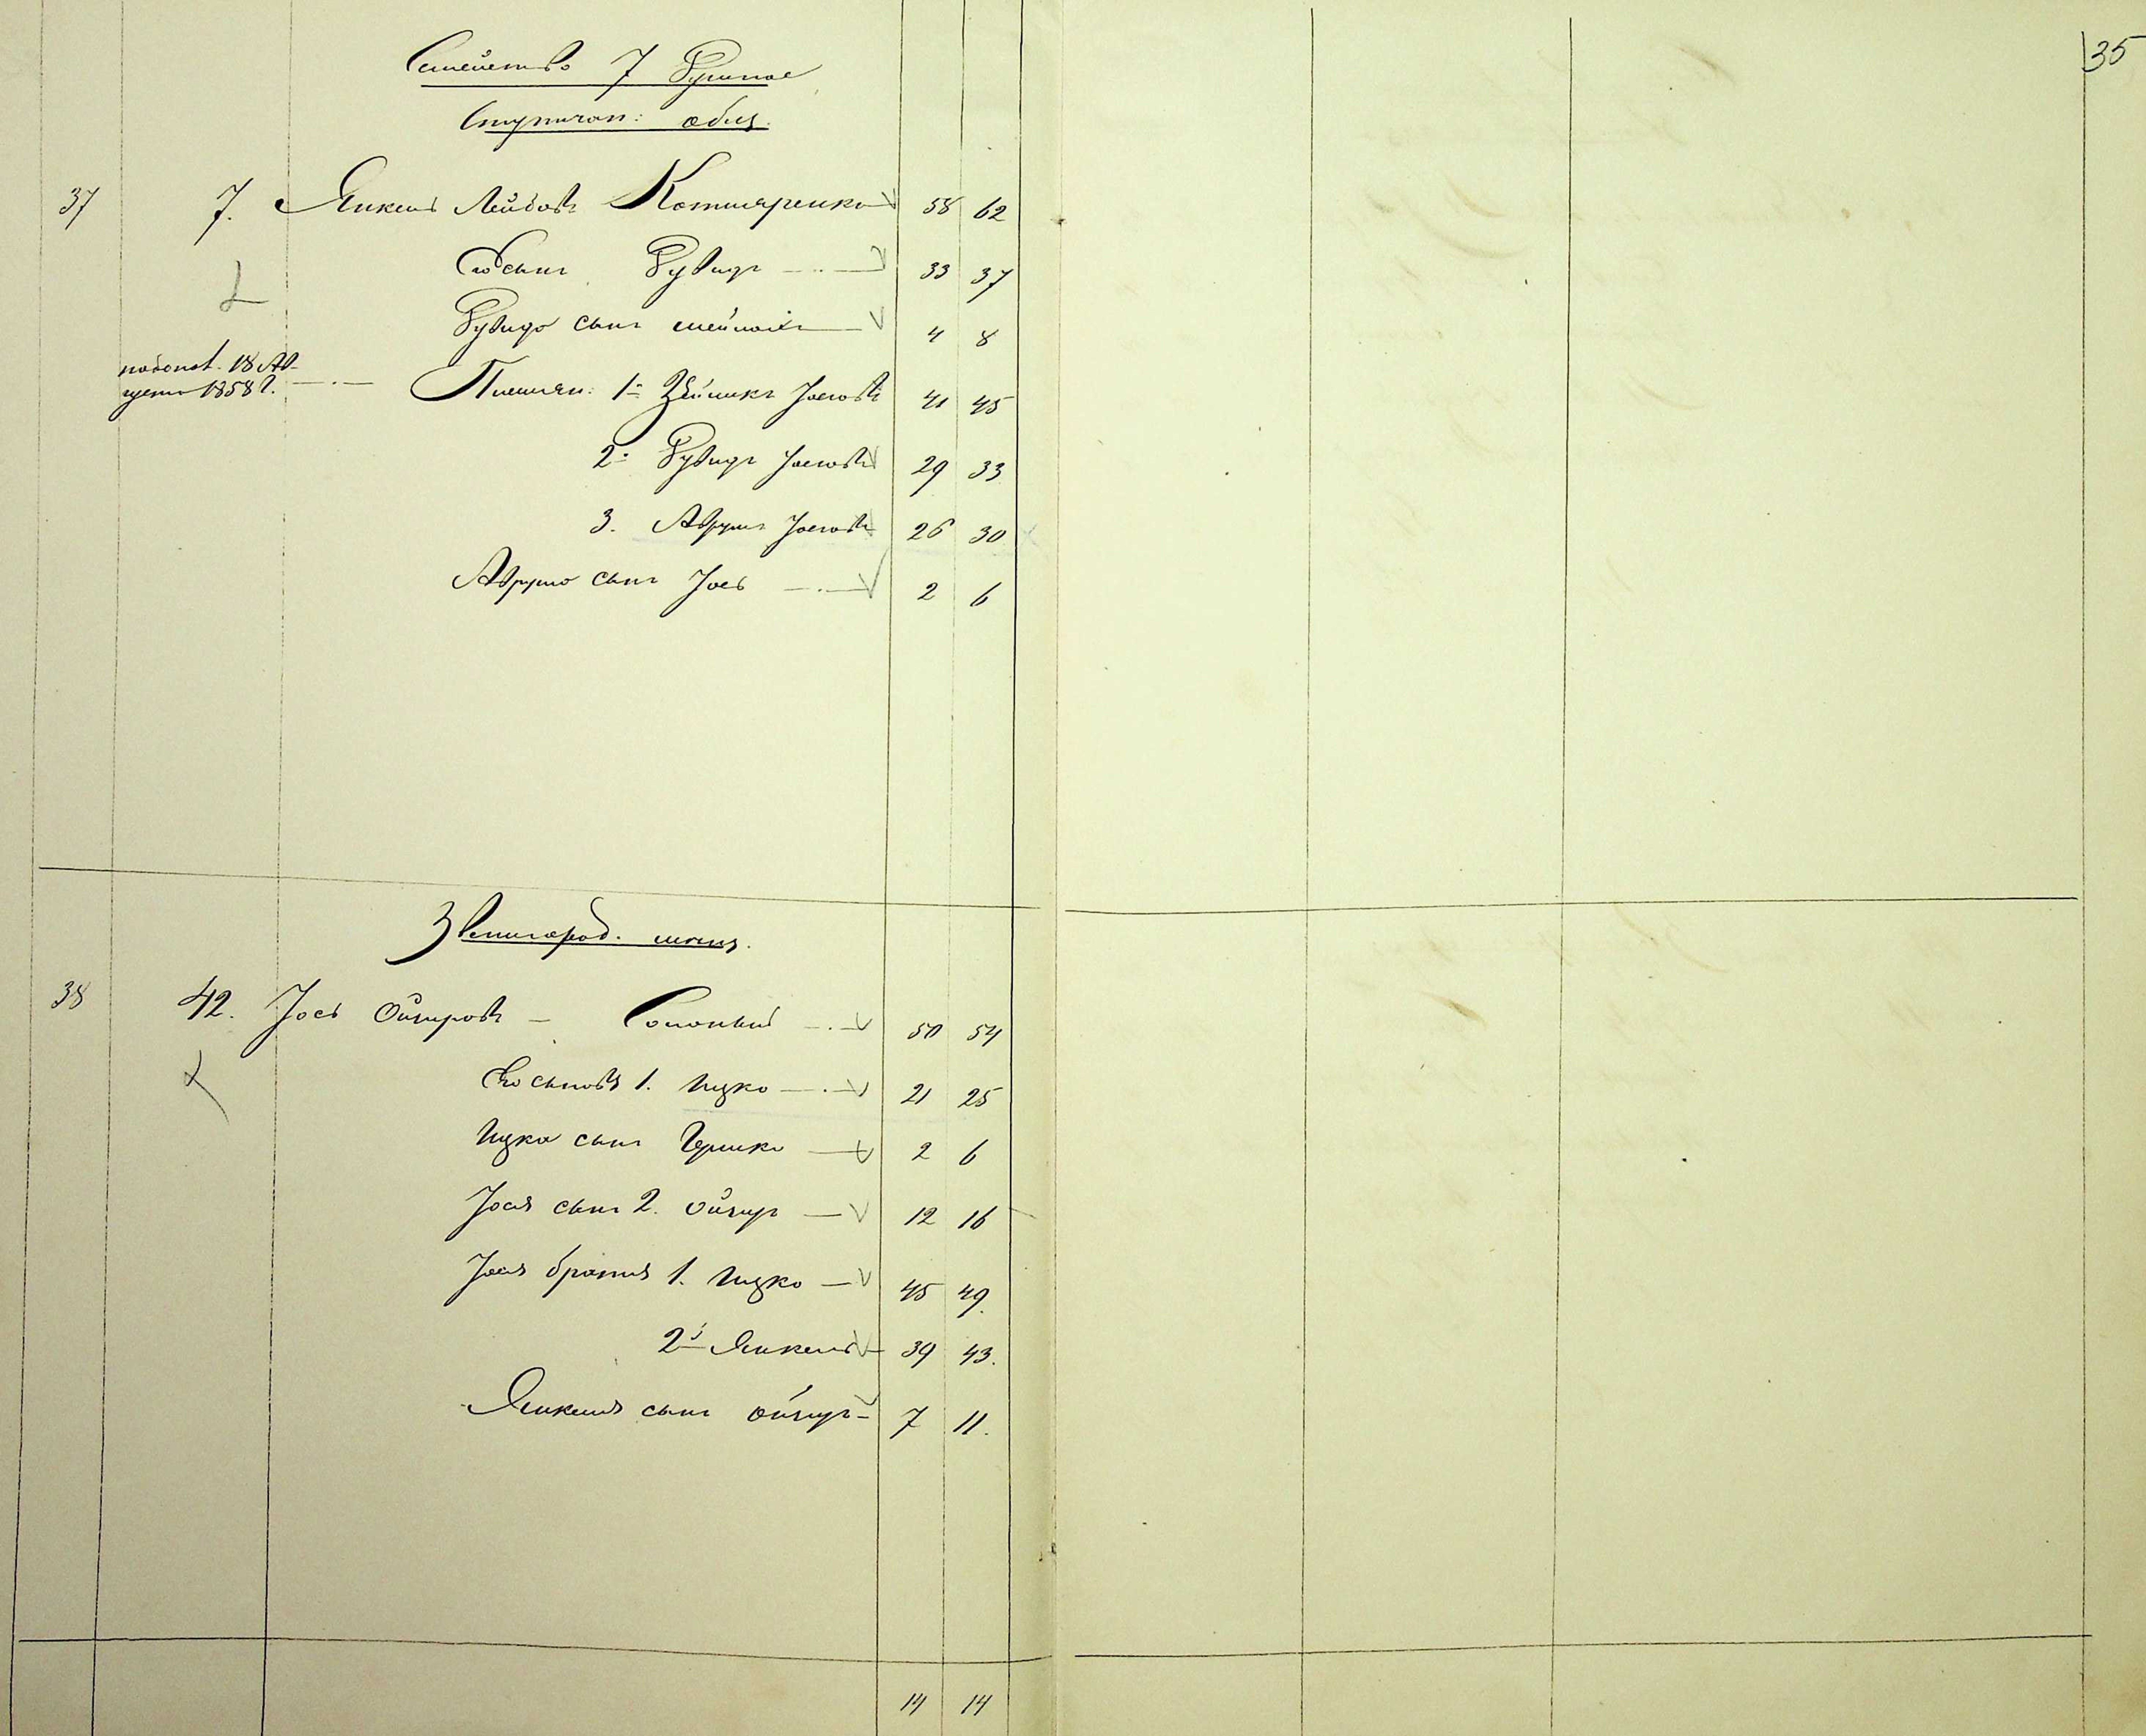 35
Семейство 7 Душное
Ступичан: общ.
37 7. Янкель Лейбовъ Котляренко 58 62
Его сынъ Дувидъ 33 37
Дувида сынъ Шейнохъ 4 8
поволь. 18 Ав-
густа 1858 г. Племян: 1й Зейликъ Іосіовъ 41 45
2й Дувидъ Іосіовъ 29 33
3. Аврумъ Іосіовъ 26 30
Аврума сынъ Іось 2 6
Звенигород. мѣщ.
38 42. Іось Ойзеровъ Солоный 50 54
Его сыновья 1. Ицко 21 25
Ицка сынъ Гершко 2 6
Іося сынъ 2. Ойзеръ 12 16
Іося братья 1. Ицко 45 49.
2й Янкель 39 43.
Янкеля сынъ Ойзеръ 7 11.
14 14